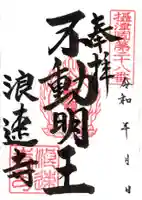 攝津國第二十八番
奉拝
令和 年 月 日
不動明王
浪速寺